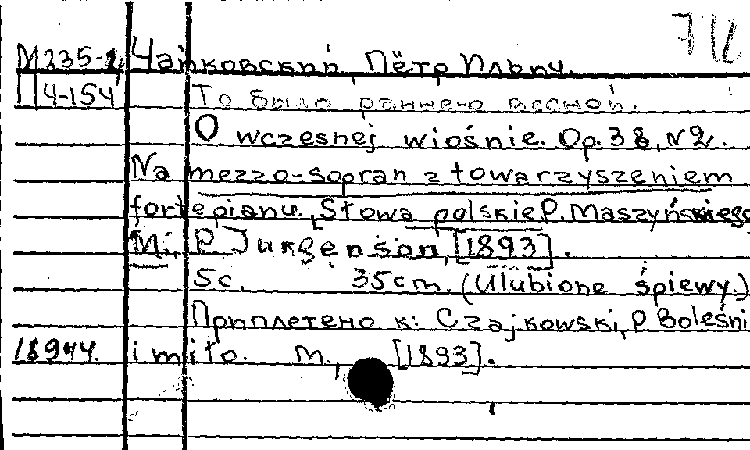 М235-2 Чайковский, Пётр Ильич.
П4-154 То было раннею весной.
O wczesnej wiośnie. Op. 38, N2.
Na mezzo-sopran z towarzyszeniem
fortepianu. [Słowa polskie P. Maszyńskiego
M., P. Jurgenson, [1893].
5 c. 35 cm. (Ulubione śpiewy.)
Приплетено к: Czajkowski, P. Boleśni
18944. i miło. M., [1893].